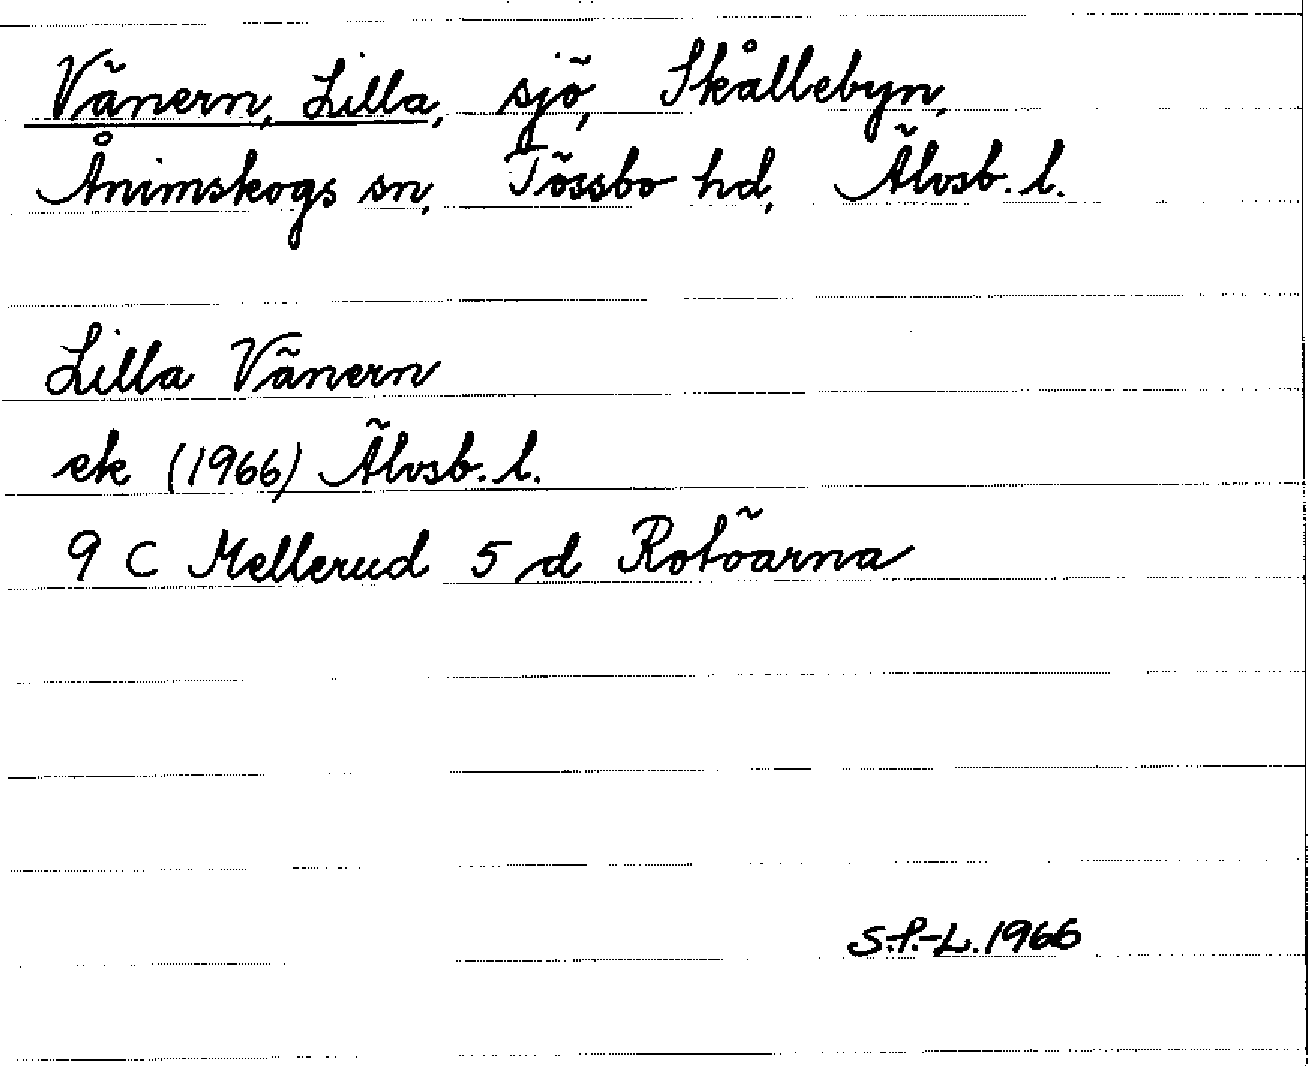 Vänern, Lilla, sjö, Skållebyn,
Ånimskogs sn, Tössbo hd, Älvsb. l.
Lilla Vänern
ek (1966) Älvsb. l.
9 C Mellerud 5 d Rotöarna
S.P.-L. 1966